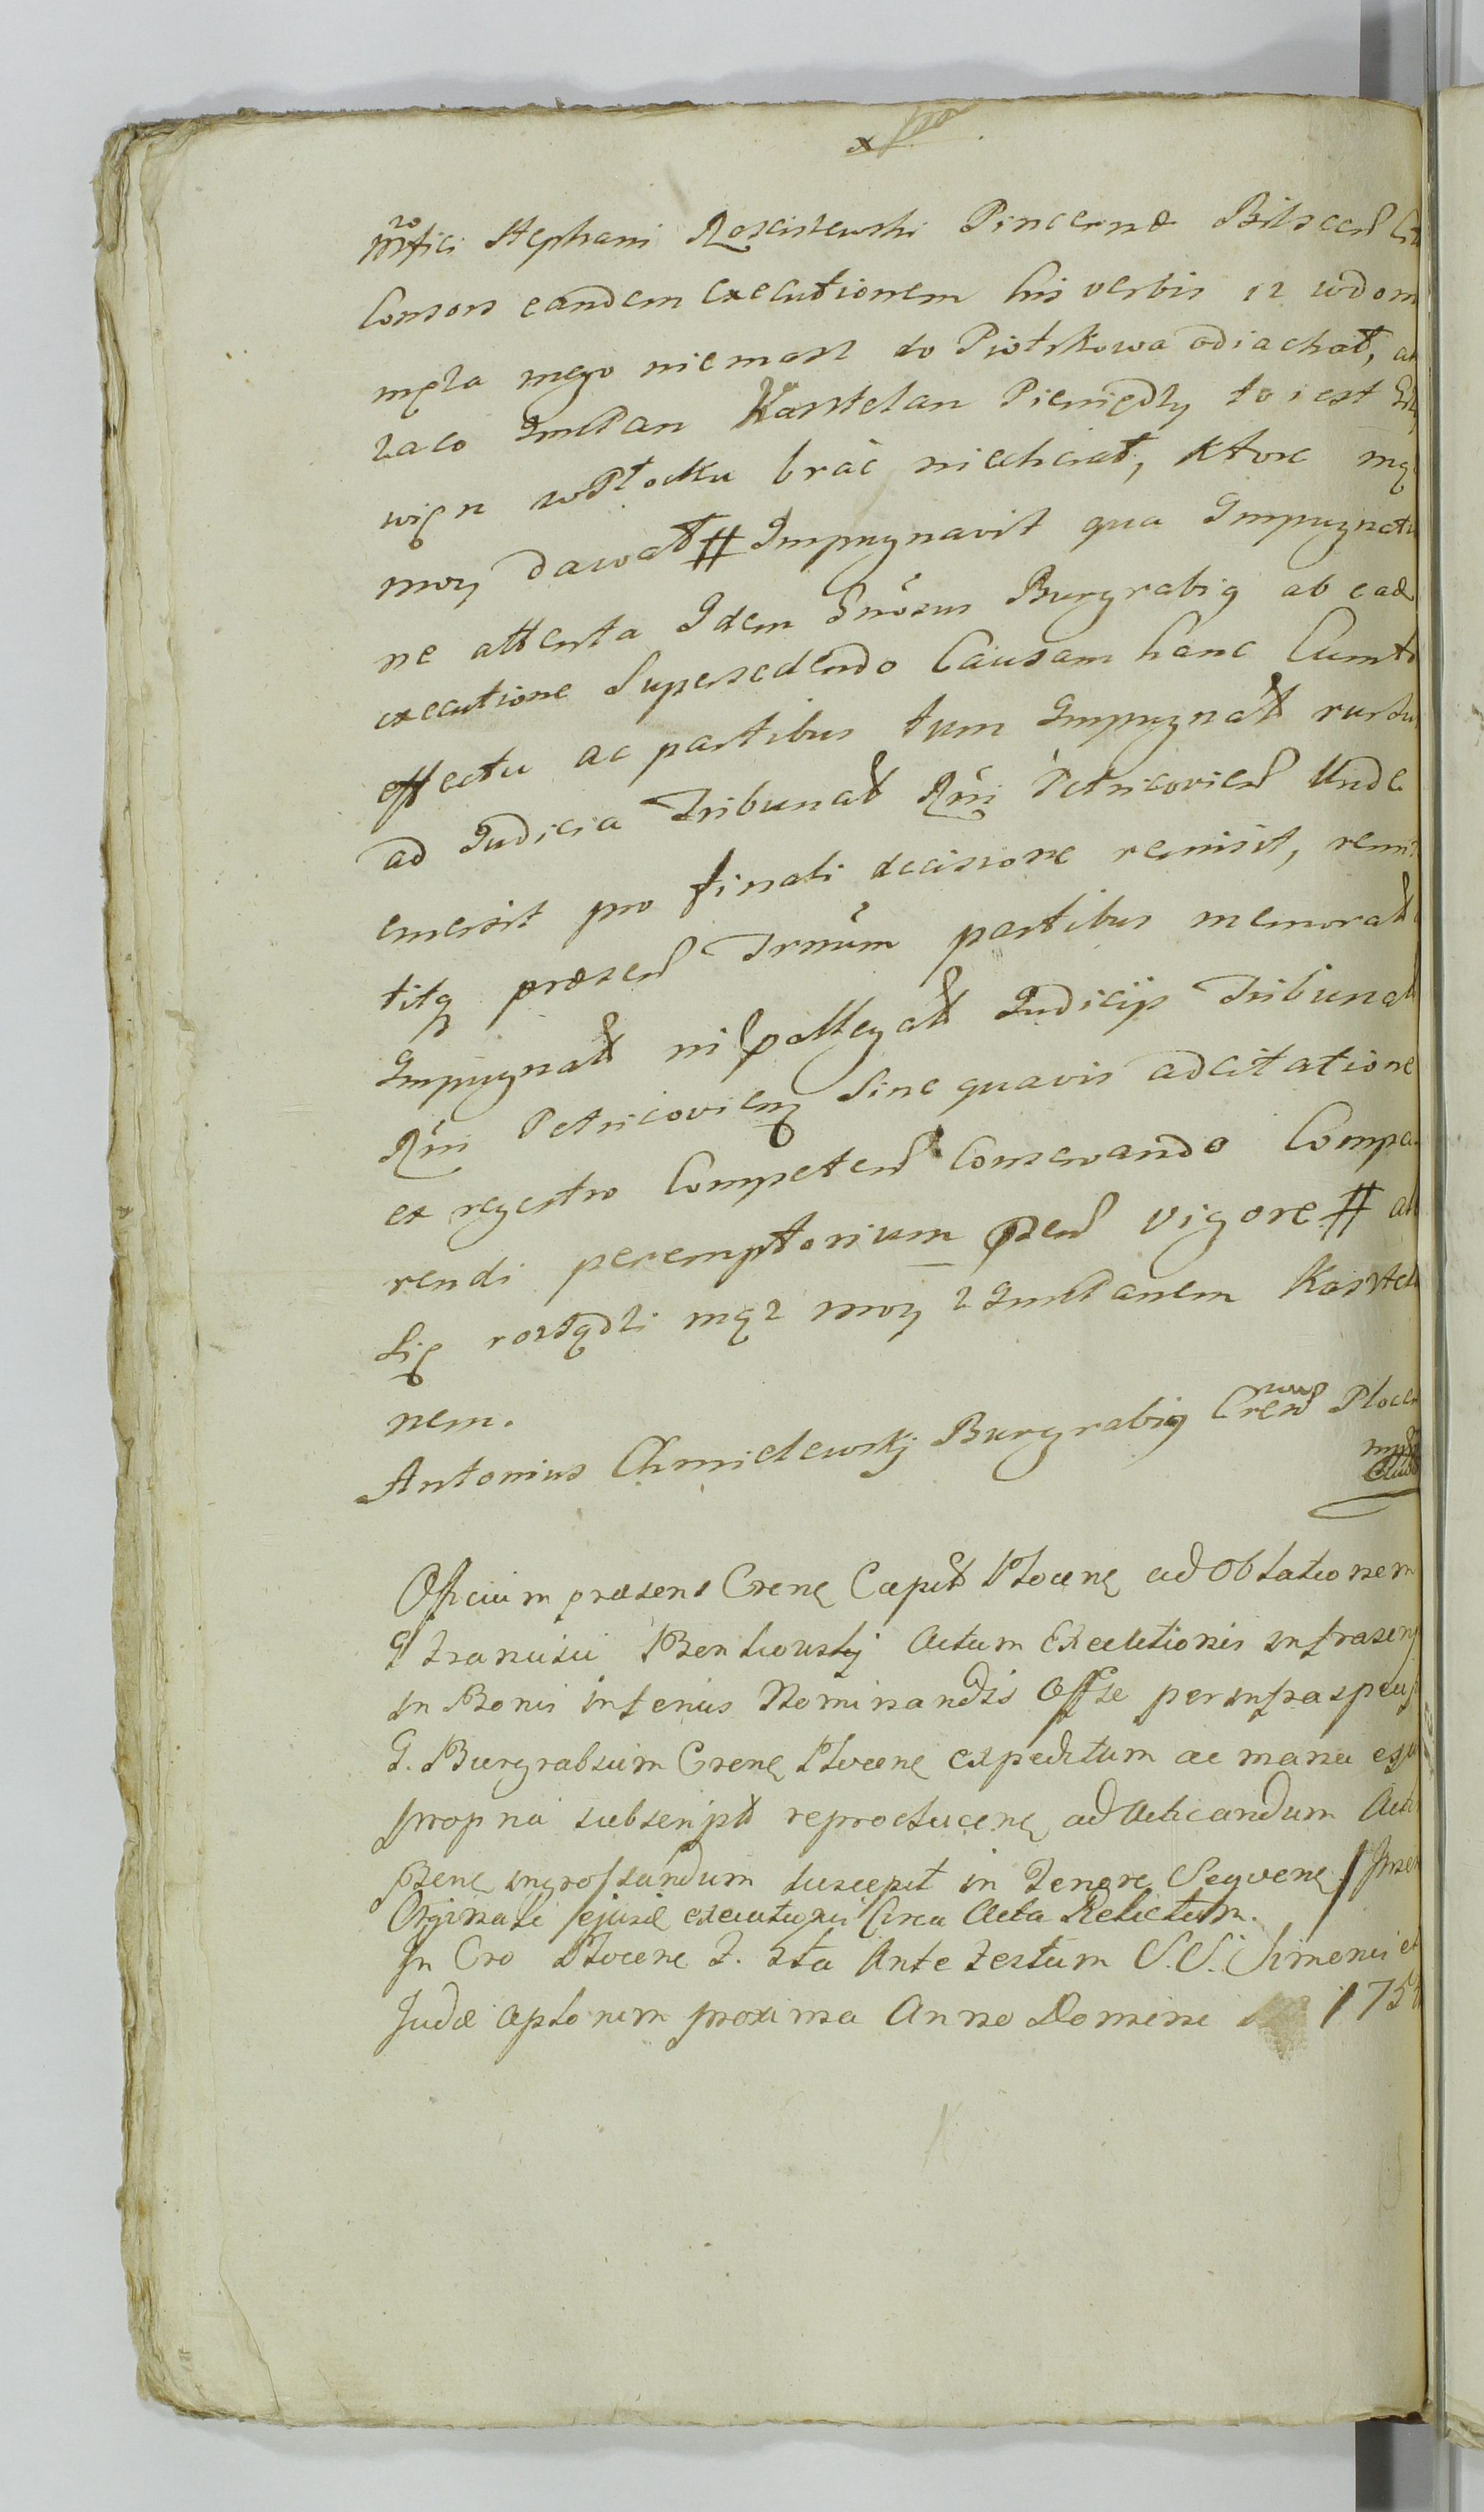 Mfici Stephani Rosciszewski Pincernæ Bilscen
Consors eandem executionem his verbis iz w dom
męża mego niemasz do Piotrkowa odiachał, a
zaco ImcPan Kasztelan Pieniędzy to iest
więn w Płocku brać niechciał, ktore mą
moy dawał # Impugnavit qua Impugnatio
ne attenta Idem Gnosus Burgrabig ab ead
executione Supersedendo Causam hanc Cum to
effectu ac partibus tum Impugnat rursu
ad Judicia Tribunal Rni Petricovien Unde
emersit pro finali decisione remisit, remi
titq præsen Trnum partibus memorat
Impugnat ni allegat Judicijs Tribunal
Rni Petricovien Sine quavis adcitatione
ex regestro Competen Conservando Compa
rendi peremptorium pzen vigore # al
Się rosządzi mąz moy z ImcPanem Kasztela
nem.
Antonius Chmielewskj Burgrabig Cren Plocen
mp
Officium præsens Crense Capit Plocense ad Oblationem
G Francisci Bentkowskj Actum Executionis infrascrip
in Bonis inferius Nominandis Offse per infraspecif
G. Burgrabium Crense Plocense expeditum ac manu ejus
propria subscript reproducens ad Acticandum Acti
pzens ingrossandum suscepit in Tenore Sequens
Orginali ejusd executionis Circa Acta Relictum.
In Cro Plocens F. 2ta Ante Festum S.S. Simonis et
Judæ Aplorum proxima Anno Domini 175